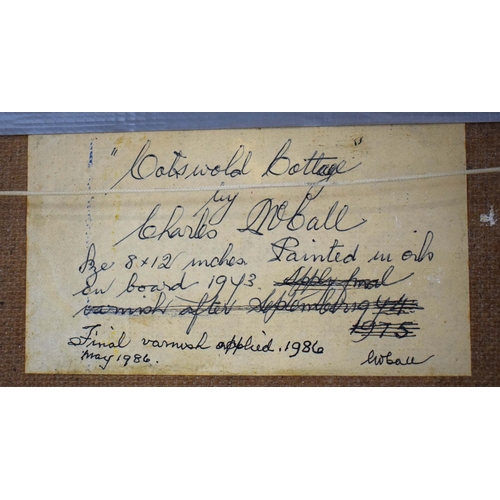 "Cotswold Cottage
by
Charles McCall
Size 8 x 12 inches Painted in oils
on board 1943. Apply final
varnish after September 1944.
1975
Final varnish applied. 1986
May 1986. McCall